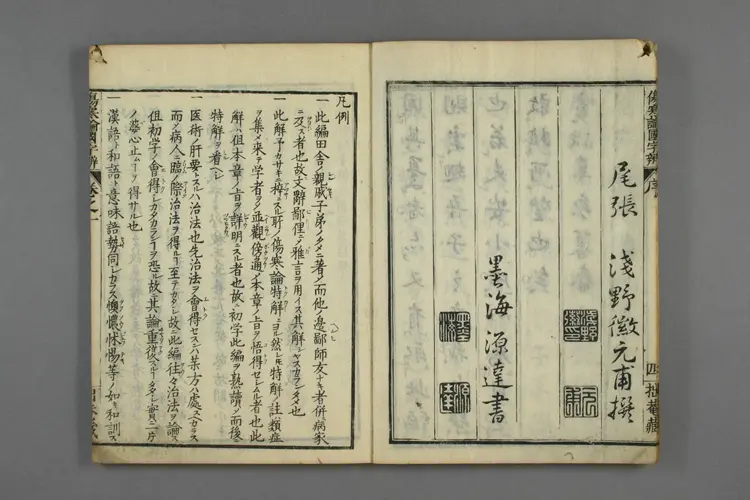 傷寒論國字辨 序 四 拙菴藏
尾張 淺野徽元甫撰
墨海 源達書
凡例
一此編田舎ノ親戚子弟ノタメニ著ノ而他ノ邊鄙師友ナキ者併病家
ニ及ス者也故文辭鄙俚ニノ雅言ヲ用イス其解シヤスカランタメ也
一此解予カサキニ梓スル所ノ傷寒論特解ニヨル然レ𪜈特解ノ註類症
ヲ集メ来テ學者ヲノ並觀俟通ノ本章ノ旨ヲ悟得セシムル者也此
解ハ但本章ノ旨ヲ詳明ニスル者也故ニ初学此編ヲ熟讀ノ而後ニ
特解ヲ看ヘシ
一医術ノ肝要トスルハ治法也先治法ヲ會得セスンハ某方ハ處スヘカラス
而ノ病人ニ臨ノ際治法ヲ得ルヿ至テカタシ故ニ此編往々治法ヲ論ス
但初学ノ會得シカタカランヿヲ恐ル故ニ其論重復スルヿ多シ實ニ一片
ノ婆心止ムヿヲ得サル也
一漢語ト和語ト意味語勢同シカラス懊憹怵惕等ノ如キ和訓ス
傷寒論國字辨 卷之一